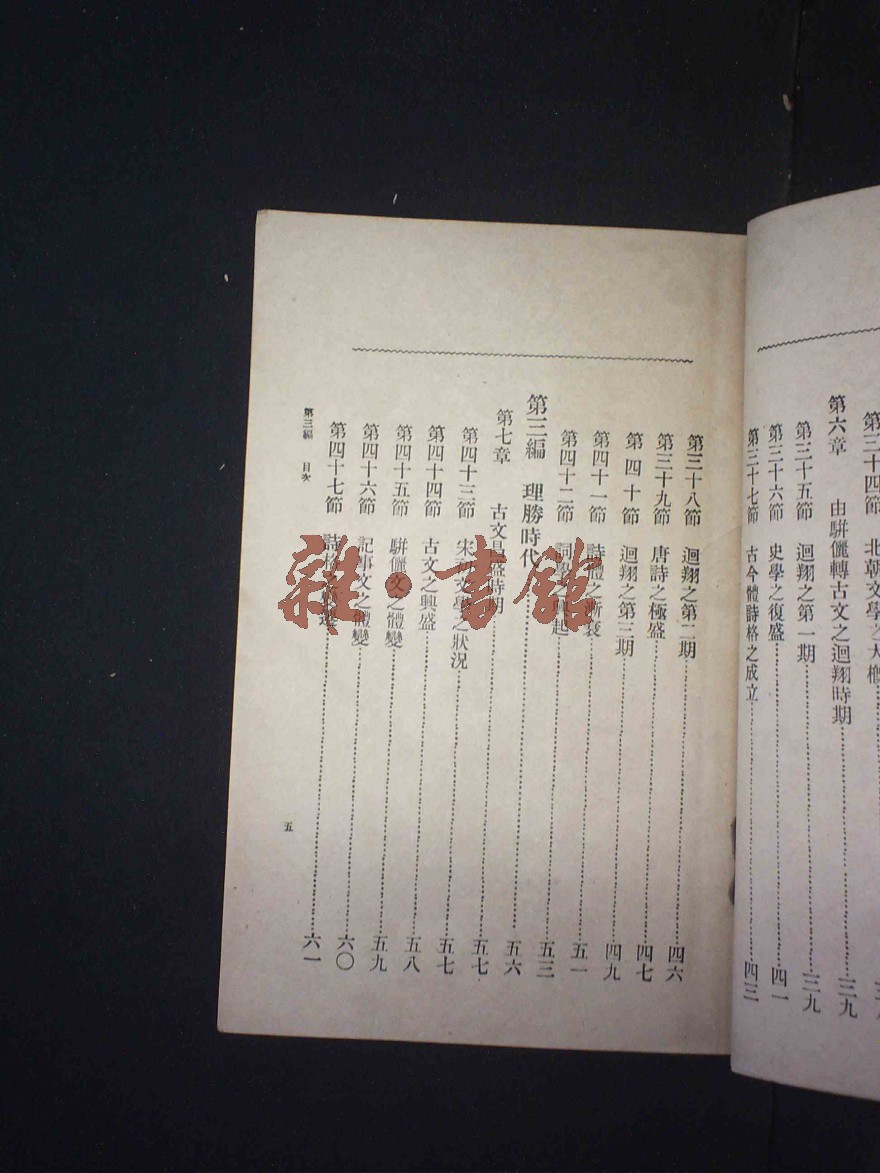 第三十四節 北朝文學之大
第六章 由駢儷轉古文之迴翔時期 三九
第三十五節 迴翔之第一期 三九
第三十六節 史學之復盛 四一
第三十七節 古今體詩格之成立 四三
第三十八節 迴翔之第二期 四六
第三十九節 唐詩之極盛 四七
第四十節 迴翔之第三期 四九
第四十一節 詩體之漸衰 五一
第四十二節 詞 興起 五三
第三編 理勝時代 五六
第七章 古文昌盛時期 五七
第四十三節 宋 文學之狀況 五七
第四十四節 古文之興盛 五八
第四十五節 駢儷文之體變 五九
第四十六節 記事文之體變 六〇
第四十七節 詩格之 遷 六一
第三編 目次
五
雜·書館